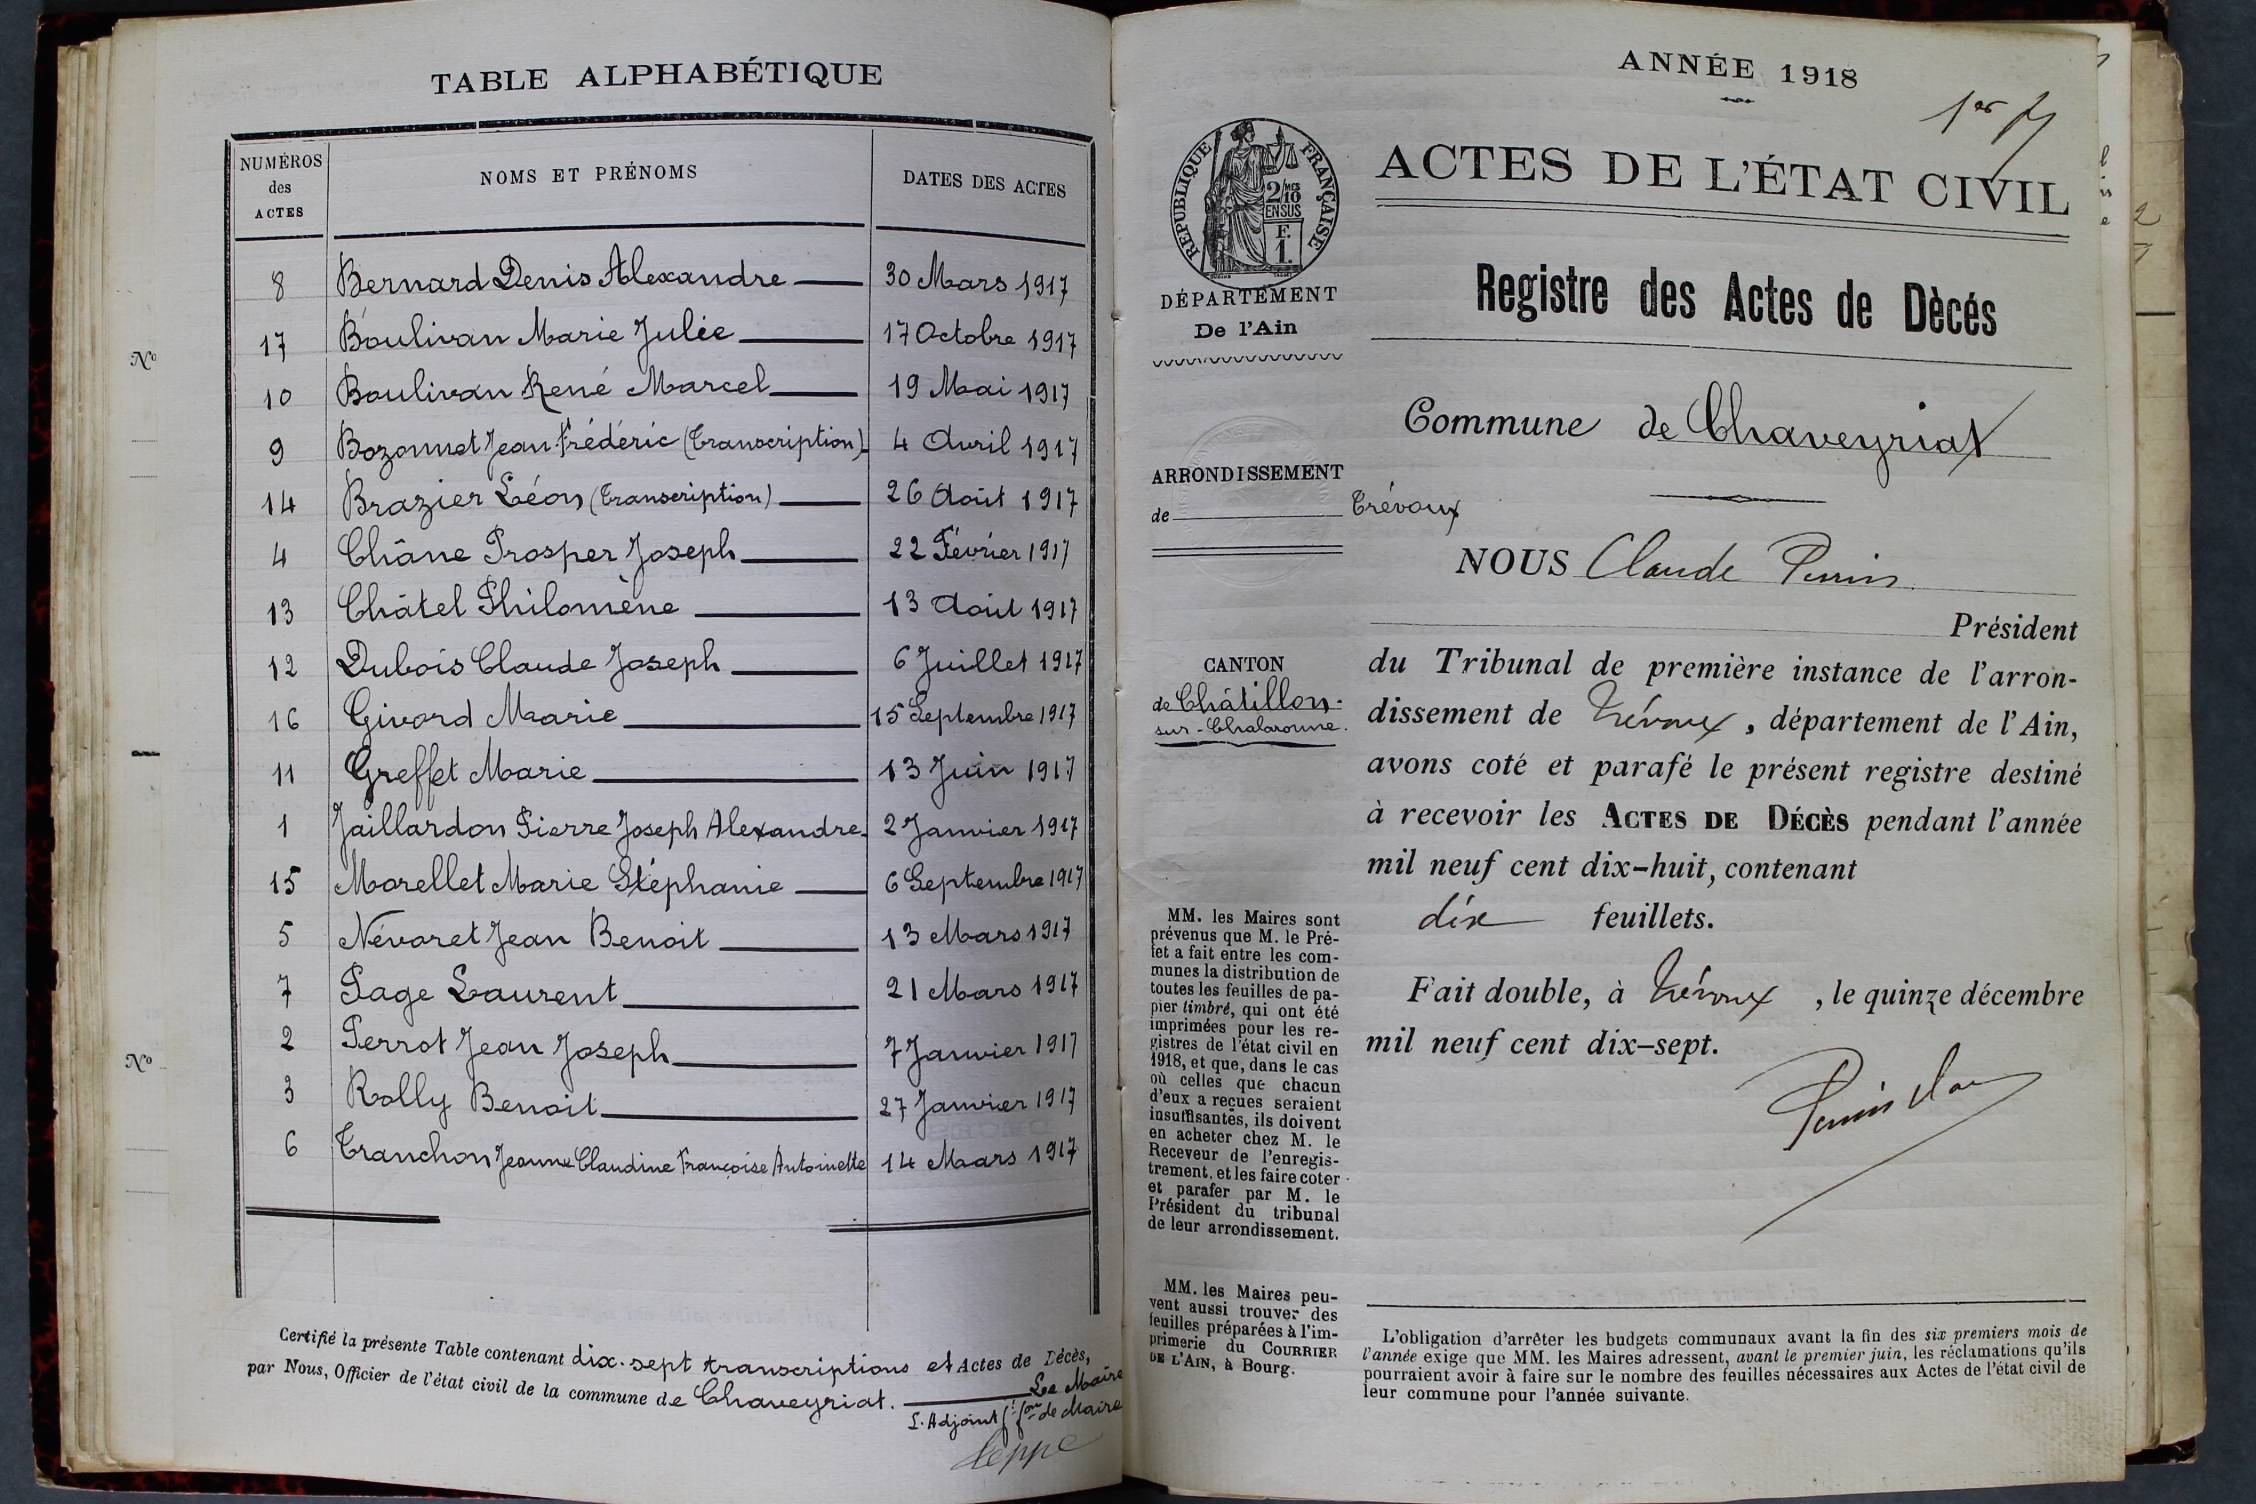 TABLE ALPHABÉTIQUE
NUMÉROS des ACTES
NOMS ET PRÉNOMS
DATES DES ACTES
8 Bernard Denis Alexandre 30 Mars 1917
17 Boulivan Marie Julie 17 Octobre 1917
10 Boulivan René Marcel 19 Mai 1917
9 Bozonnet Jean Frédéric (Transcription) 4 Avril 1917
14 Brazier Léon (Transcription) 26 Août 1917
4 Châne Prosper Joseph 22 Février 1917
13 Châtel Philomène 13 Août 1917
12 Dubois Claude Joseph 6 Juillet 1917
16 Givord Marie 15 Septembre 1917
11 Greffet Marie 13 Juin 1917
1 Jaillardon Pierre Joseph Alexandre 2 Janvier 1917
15 Morellet Marie Stéphanie 6 Septembre 1917
5 Névoret Jean Benoit 13 Mars 1917
7 Page Laurent 21 Mars 1917
2 Perrot Jean Joseph 7 Janvier 1917
3 Rolly Benoit 27 Janvier 1917
6 Tranchon Jeanne Claudine Françoise Antoinette 14 Mars 1917
Certifié la présente Table contenant dix-sept transcriptions et Actes de Décès,
par Nous, Officier de l'état civil de la commune de Chaveyriat. Le Maire
L'Adjoint f.t f.on de Maire
Nº
Nº
ANNÉE 1918
1er
ACTES DE L'ÉTAT CIVIL
RÉPUBLIQUE FRANÇAISE
2/10 MES
EN SUS
F.
1.
DÉPARTEMENT
De l'Ain
Registre des Actes de Dècés
Commune de Chaveyriat
ARRONDISSEMENT
de Trévoux
NOUS Claude Perrin
Président
CANTON
de Châtillon-
sur-Chalaronne.
du Tribunal de première instance de l'arron-
dissement de Trévoux, département de l'Ain,
avons coté et parafé le présent registre destiné
à recevoir les ACTES DE DÉCÈS pendant l'année
mil neuf cent dix-huit, contenant
dix feuillets.
Fait double, à Trévoux, le quinze décembre
mil neuf cent dix-sept.
MM. les Maires sont
prévenus que M. le Pré-
fet a fait entre les com-
munes la distribution de
toutes les feuilles de pa-
pier timbré, qui ont été
imprimées pour les re-
gistres de l'état civil en
1918, et que, dans le cas
où celles que chacun
d'eux a reçues seraient
insuffisantes, ils doivent
en acheter chez M. le
Receveur de l'enregis-
trement, et les faire coter
et parafer par M. le
Président du tribunal
de leur arrondissement.
MM. les Maires peu-
vent aussi trouver des
feuilles préparées à l'im-
primerie du COURRIER
DE L'AIN, à Bourg.
L'obligation d'arrêter les budgets communaux avant la fin des six premiers mois de
l'année exige que MM. les Maires adressent, avant le premier juin, les réclamations qu'ils
pourraient avoir à faire sur le nombre des feuilles nécessaires aux Actes de l'état civil de
leur commune pour l'année suivante.